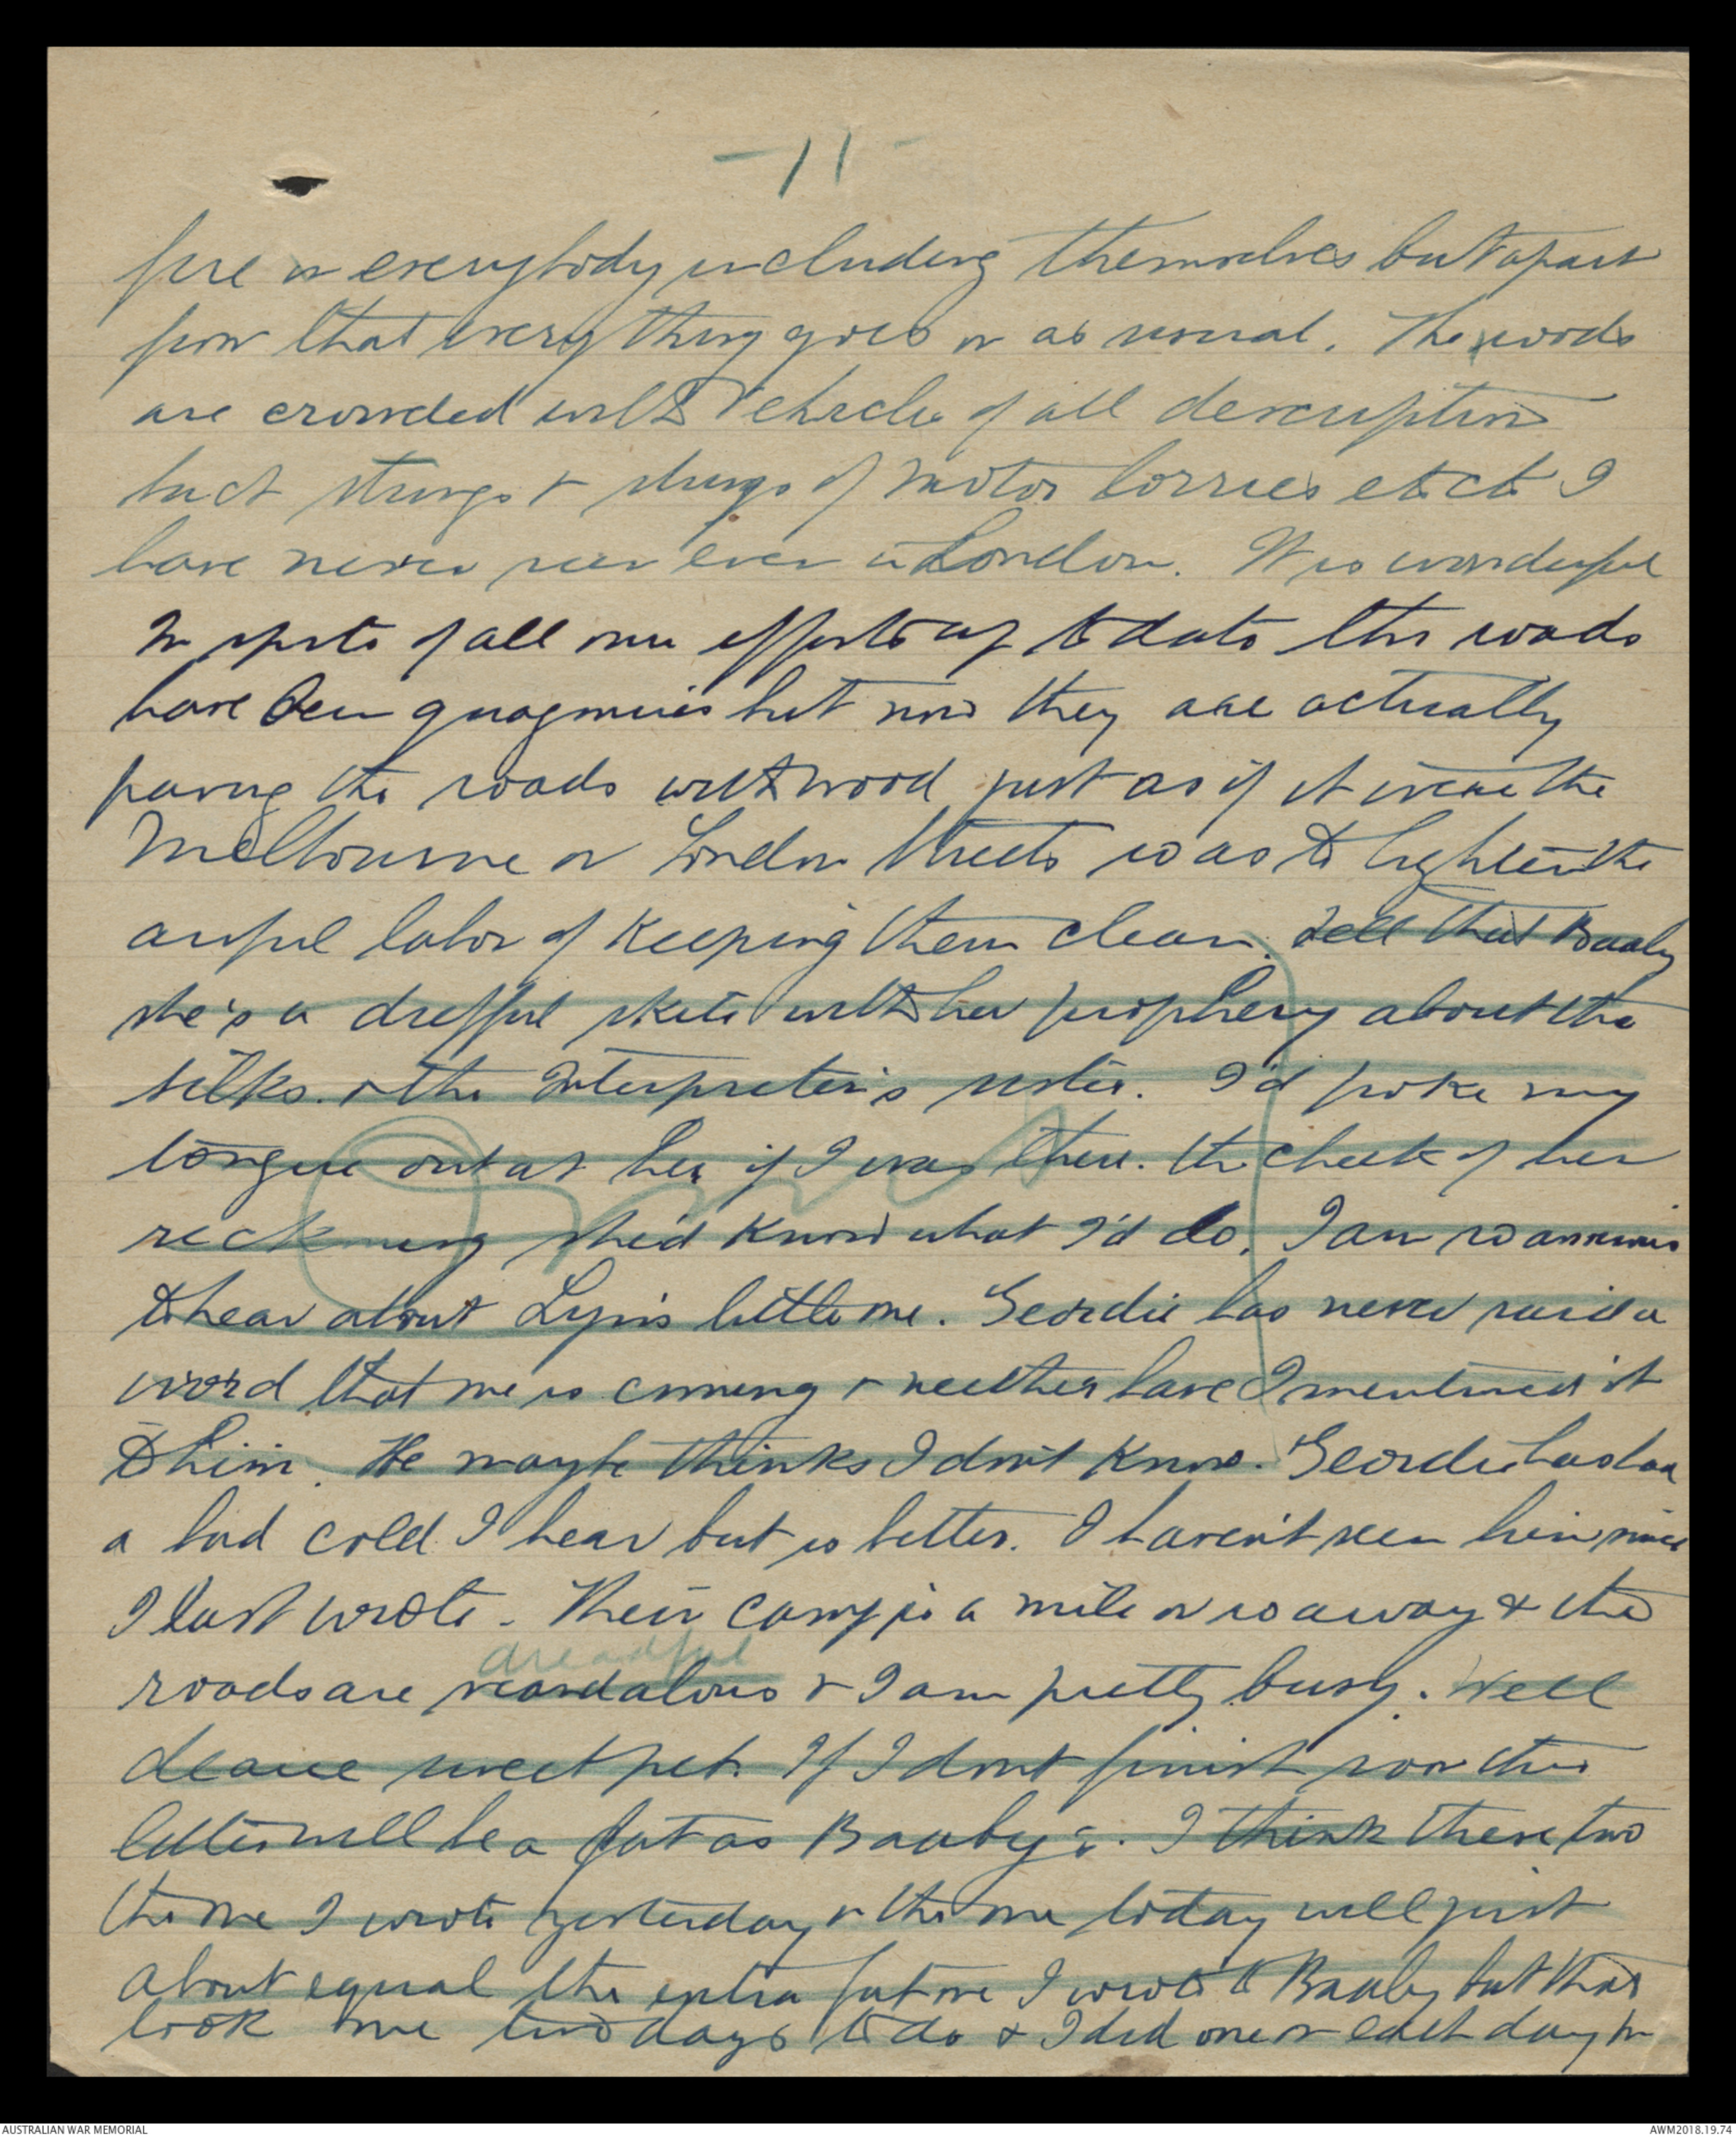 - 11 -
fire on everybody including themselves but apart
from that everything goes on as usual. The roads
are crowded with vehicles of all descriptions
but strings & strings of motor lorries etc etc I
have never seen even in London. It is wonderful
In spite of all our efforts up to date the roads
have been quagmires but now they are actually
paving the roads with wood just as if it were the
Melbourne or London streets so as to lighten the
awful labor of keeping them clean. Tell that Baaby
she's a dreffful skite with her prophecy about the
silks & the Interpreter's sister. I'd poke my
tongue out at her if I was there. The cheek of her
reckoning she'd know what I'd do. I am so anxious
to hear about Lyn's little one. Geordie has never said a
word that one is coming & neither have I mentioned it
to him. He maybe thinks I don't know. Geordie has had
a bad cold I hear but is better. I haven't seen him since
I last wrote. Their camp is a mile or so away & the
dreadful
roads are scandalous & I am pretty busy. Well
dearie sweet pet. If I don't finish soon this
letter will be a fat as Baaby's. I think these two
the one I wrote yesterday & the one today will just
about equal the extra fat one I wrote to Baaby but that
took me two days to do & I did one on each day for
AUSTRALIAN WAR MEMORIAL
AWM2018.19.74